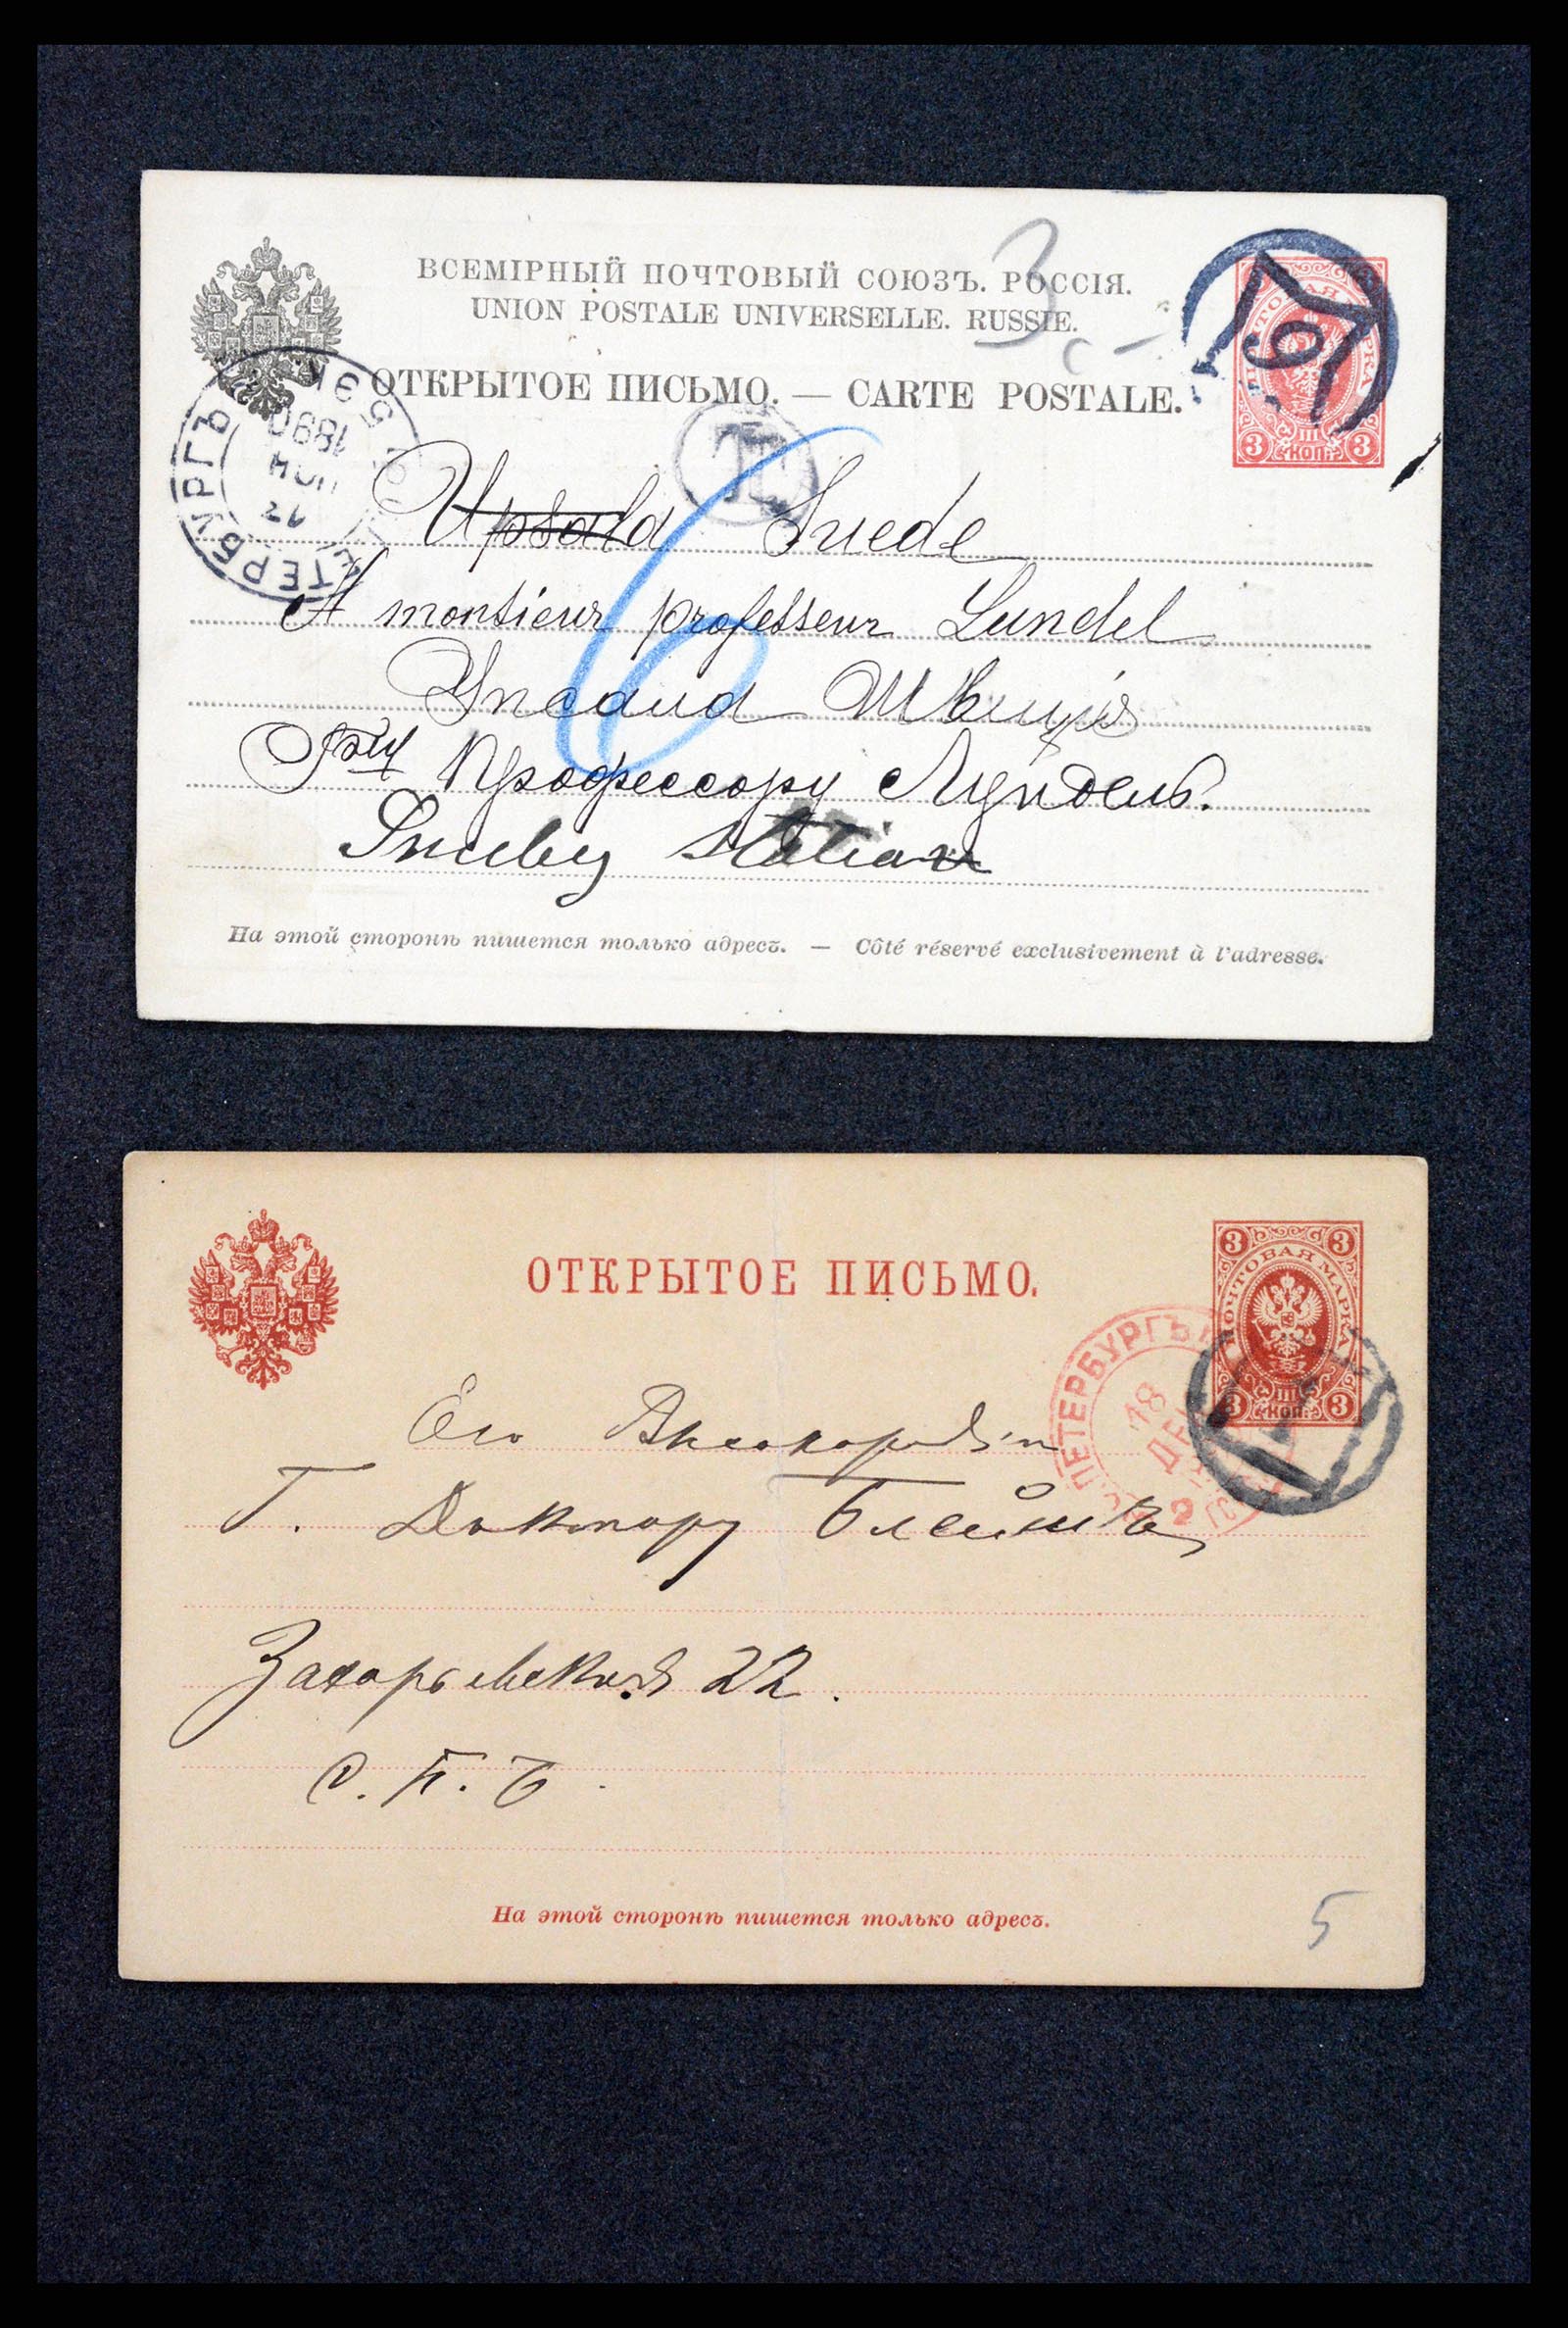 ВСЕМІРНЫЙ ПОЧТОВЫЙ СОЮЗЪ. РОССІЯ.
UNION POSTALE UNIVERSELLE. RUSSIE.
ОТКРЫТОЕ ПИСЬМО. — CARTE POSTALE.
3
ПОЧТОВАЯ МАРКА
6
3 III 3
КОП.
ТЕРБУРГЪ
1890
T
6
Upsala Suede
A monsieur professeur Lundel
Упсала Швеція
Гну Профессору Лундель.
Station
На этой сторонѣ пишется только адресъ. — Côté réservé exclusivement à l'adresse.
ОТКРЫТОЕ ПИСЬМО.
3 3
ПОЧТОВАЯ МАРКА
3 III 3
КОП.
С. ПЕТЕРБУРГЪ
18
ДЕК
2
1
Его Высокородію
Г. Доктору
Захарьевская 22.
С. П. Б.
На этой сторонѣ пишется только адресъ.
5